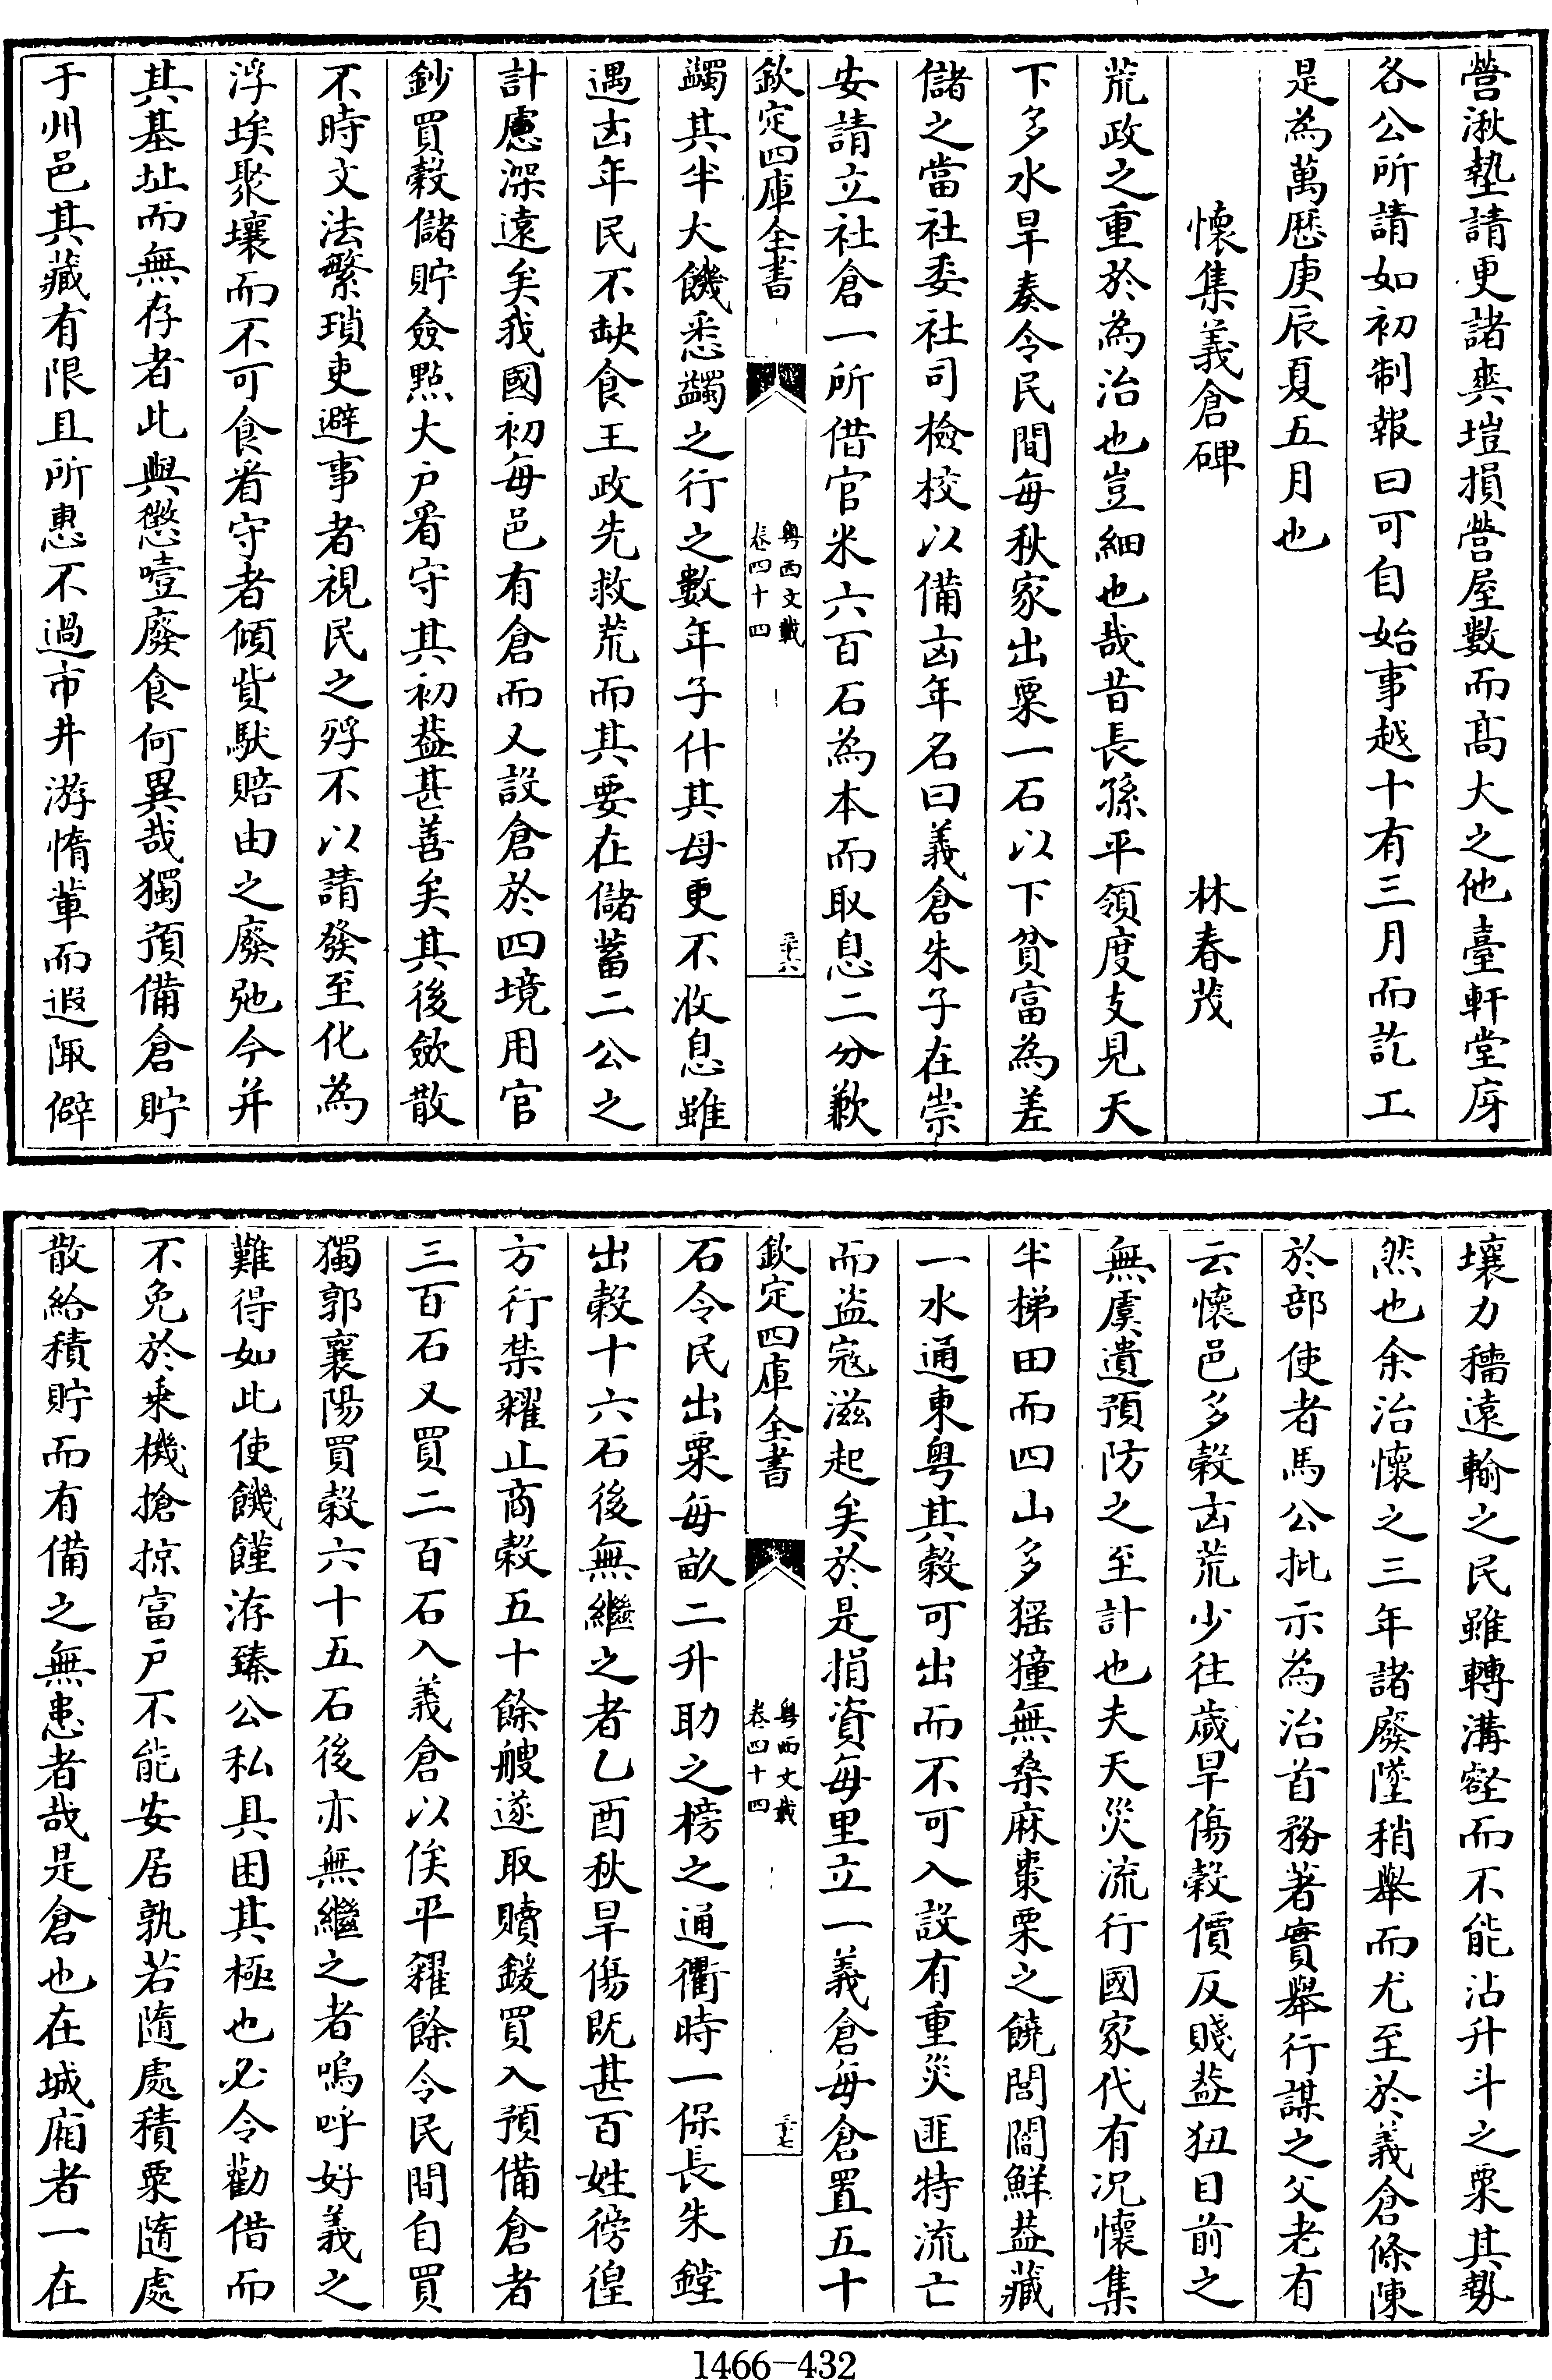 營湫墊請更諸爽塏損營屋數而高大之他臺軒堂序
各公所請如初制報曰可自始事越十有三月而訖工
是為萬厯庚辰夏五月也
懷集義倉碑　林春茂
荒政之重於為治也豈細也哉昔長孫平領度支見天
下多水旱奏令民間每秋家出粟一石以下貧富為差
儲之當社委社司檢校以備凶年名曰義倉朱子在崇
安請立社倉一所借官米六百石為本而取息二分歉
欽定四庫全書
粤西文載
卷四十四
三十六
蠲其半大饑悉蠲之行之數年子什其母更不收息雖
遇凶年民不缺食王政先救荒而其要在儲蓄二公之
計慮深遠矣我國初每邑有倉而又設倉於四境用官
鈔買榖儲貯僉點大户看守其初葢甚善矣其後斂散
不時文法繁瑣吏避事者視民之殍不以請發至化為
浮埃聚壤而不可食看守者傾貲馱賠由之廢弛今并
其基址而無存者此與懲噎廢食何異哉獨預備倉貯
于州邑其藏有限且所惠不過市井游惰軰而遐陬僻
壤力穡遠輸之民雖轉溝壑而不能沾升斗之粟其勢
然也余治懷之三年諸廢墜稍舉而尤至於義倉條陳
於部使者馬公批示為治首務著實舉行謀之父老有
云懷邑多榖凶荒少往歲旱傷榖價反賤葢狃目前之
無虞遺預防之至計也夫天災流行國家代有况懷集
半梯田而四山多猺獞無桑麻棗栗之饒閭閻鮮葢藏
一水通東粤其榖可出而不可入設有重災匪特流亡
而盜寇滋起矣於是捐資每里立一義倉每倉置五十
欽定四庫全書
粤西文載
卷四十四
三十七
石令民出粟每畝二升助之榜之通衢時一保長朱鏜
出榖十六石後無繼之者乙酉秋旱傷既甚百姓徬徨
方行禁糴止商榖五十餘艘遂取贖鍰買入預備倉者
三百石又買二百石入義倉以俟平糴餘令民間自買
獨郭襄陽買榖六十五石後亦無繼之者嗚呼好義之
難得如此使饑饉洊臻公私具困其極也必令勸借而
不免於乗機搶掠富户不能安居孰若隨處積粟隨處
散給積貯而有備之無患者哉是倉也在城廂者一在
1466-432